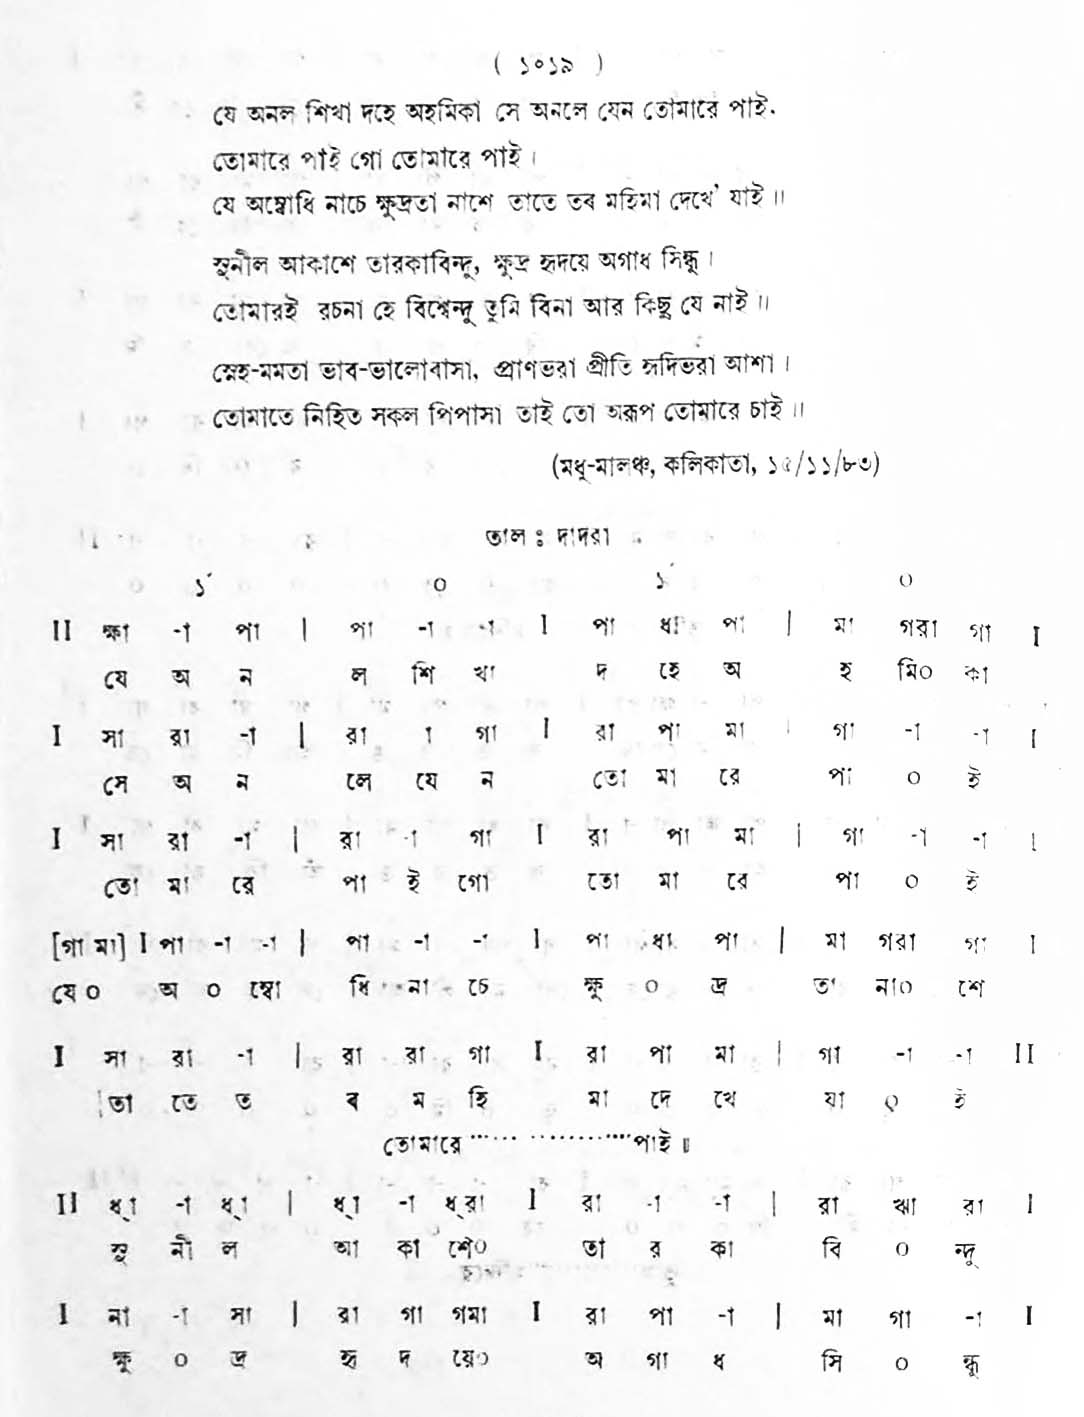 ( ১০১৯ )
যে অনল শিখা দহে অহমিকা সে অনলে যেন তোমারে পাই.
তোমারে পাই গো তোমারে পাই।
যে অম্বোধি নাচে ক্ষুদ্রতা নাশে তাতে তব মহিমা দেখে' যাই॥
সুনীল আকাশে তারকাবিন্দু, ক্ষুদ্র হৃদয়ে অগাধ সিন্ধু।
তোমারই রচনা হে বিশ্বেন্দু তুমি বিনা আর কিছু যে নাই॥
স্নেহ-মমতা ভাব-ভালোবাসা, প্রাণভরা প্রীতি হৃদিভরা আশা।
তোমাতে নিহিত সকল পিপাসা তাই তো অরূপ তোমারে চাই॥
(মধু-মালঞ্চ, কলিকাতা, ১৫/১১/৮৩)
তাল ঃ দাদরা
১´ ০ ১´ ০
II ক্ষা -া পা | পা -া -া I পা ধা পা | মা গরা গা I
যে অ ন ল শি খা দ হে অ হ মি০ কা
I সা রা -া | রা া গা I রা পা মা | গা -া -া I
সে অ ন লে যে ন তো মা রে পা ০ ই
I সা রা -া | রা -া গা I রা পা মা | গা -া -া I
তো মা রে পা ই গো তো মা রে পা ০ ই
[গা মা] I পা -া -া | পা -া -া I পা ধা পা | মা গরা গা I
যে ০ অ ০ ম্বো ধি না চে ক্ষু ০ দ্র তা না০ শে
I সা রা -া | রা রা গা I রা পা মা | গা -া -া II
তা তে ত ব ম হি মা দে খে যা ০ ই
তোমারে ................ পাই॥
II ধ্া -া ধ্া | ধ্া -া ধ্রা I রা -া -া | রা ঋা রা I
সু নী ল আ কা শে০ তা র কা বি ০ ন্দু
I না -া সা | রা গা গমা I রা পা -া | মা গা -া I
ক্ষু ০ দ্র হৃ দ য়ে০ অ গা ধ সি ০ ন্ধু